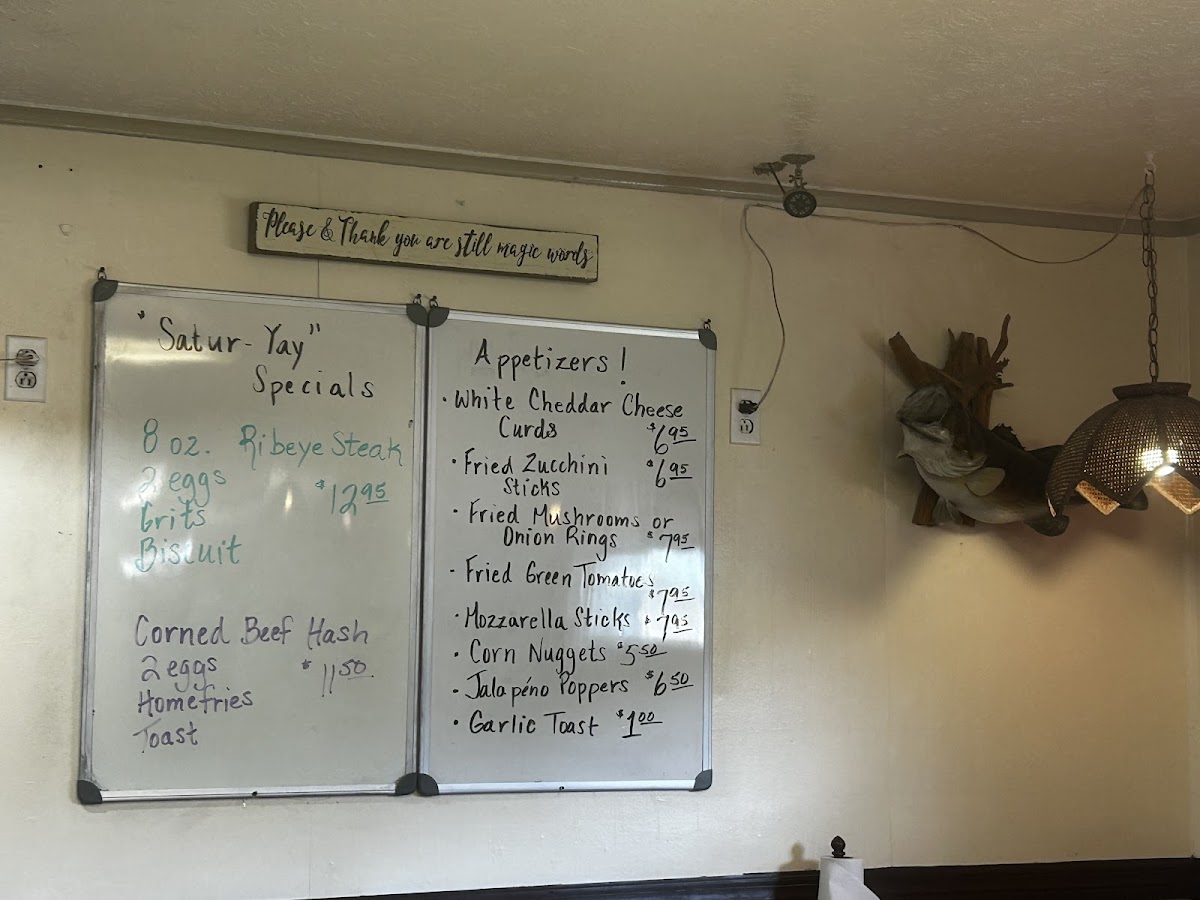 Please & Thank you are still magic words
"Satur-Yay"
Specials
8 oz. Ribeye Steak
2 eggs $12.95
Grits
Biscuit
Corned Beef Hash
2 eggs $11.50
Homefries
Toast
Appetizers!
• White Cheddar Cheese
Curds $6.95
• Fried Zucchini $6.95
Sticks
• Fried Mushrooms or
Onion Rings $7.95
- Fried Green Tomatoes
$7.95
• Mozzarella Sticks $7.95
• Corn Nuggets $5.50
• Jalapéno Poppers $6.50
• Garlic Toast $1.00